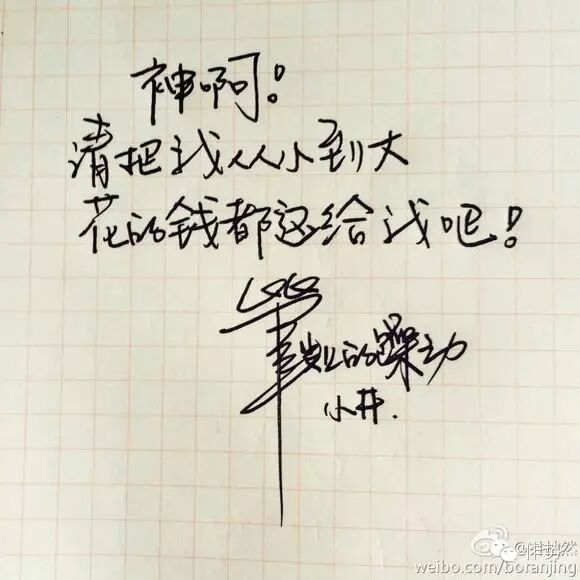 神啊!
请把我从小到大
花的钱都还给我吧!
的躁动
小井.
weibo.com/boranjing